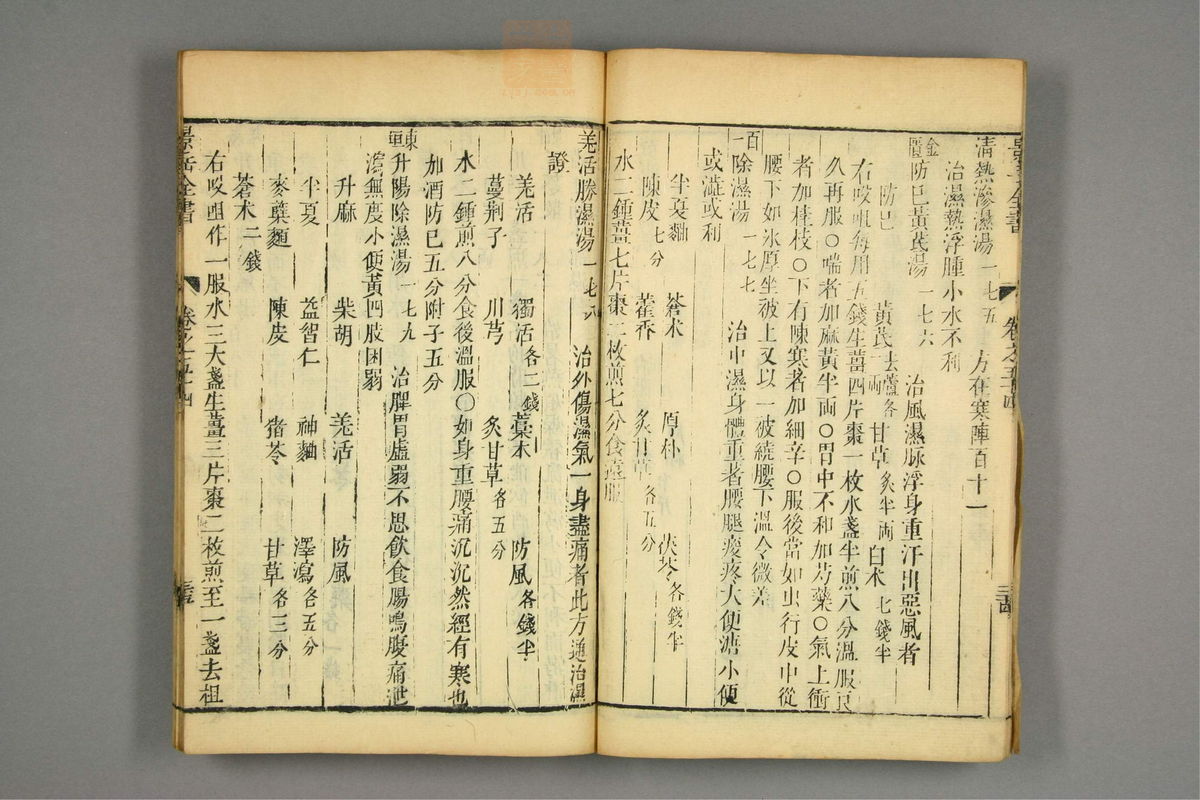 清熱滲濕湯 一七五 方在寒陣百十一
治濕熱浮腫小水不利
金匱防巳黃芪湯 一七六 治風濕脉浮身重汗出惡風者
防巳 黃芪去蘆各一兩 甘草炙半兩 白术七錢半
右㕮咀每用五錢生薑四片棗一枚水盞半煎八分溫服良
久再服○喘者加麻黃半兩○胃中不和加芍藥○氣上衝
者加桂枝○下有陳寒者加細辛○服後當如虫行皮中從
腰下如氷厚坐被上又以一被繞腰下溫令微差
百一除濕湯 一七七 治中濕身體重着腰腿痠疼大便溏小便
或澁或利
半夏麯 蒼术 厚朴 茯苓各錢半
陳皮七分 藿香 炙甘草各五分
水二鍾薑七片棗二枚煎七分食遠服
景岳全書 卷之五十四
羌活勝濕湯 一七八 治外傷濕氣一身盡痛者此方通治濕
證
羌活 獨活各二錢 藁本 防風各錢半
蔓荆子 川芎 炙甘草各五分
水二鍾煎八分食後溫服○如身重腰痛沉沉然經有寒也
加酒防巳五分附子五分
東垣升陽除濕湯 一七九 治脾胃虛弱不思飲食腸鳴腹痛泄
瀉無度小便黃四肢困弱
升麻 柴胡 羌活 防風
半夏 益智仁 神麯 澤瀉各五分
麥櫱麵 陳皮 猪苓 甘草各三分
蒼术二錢
右㕮咀作一服水三大盞生薑三片棗二枚煎至一盞去柤
景岳全書 卷之五十四